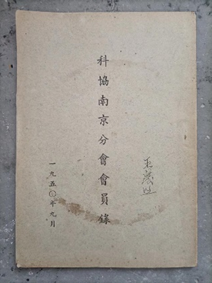 科協南京分會會員錄
一九五〇年九月